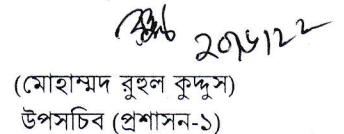 ২০/৬/২২
(মোহাম্মদ রুহুল কুদ্দুস)
উপসচিব (প্রশাসন-১)